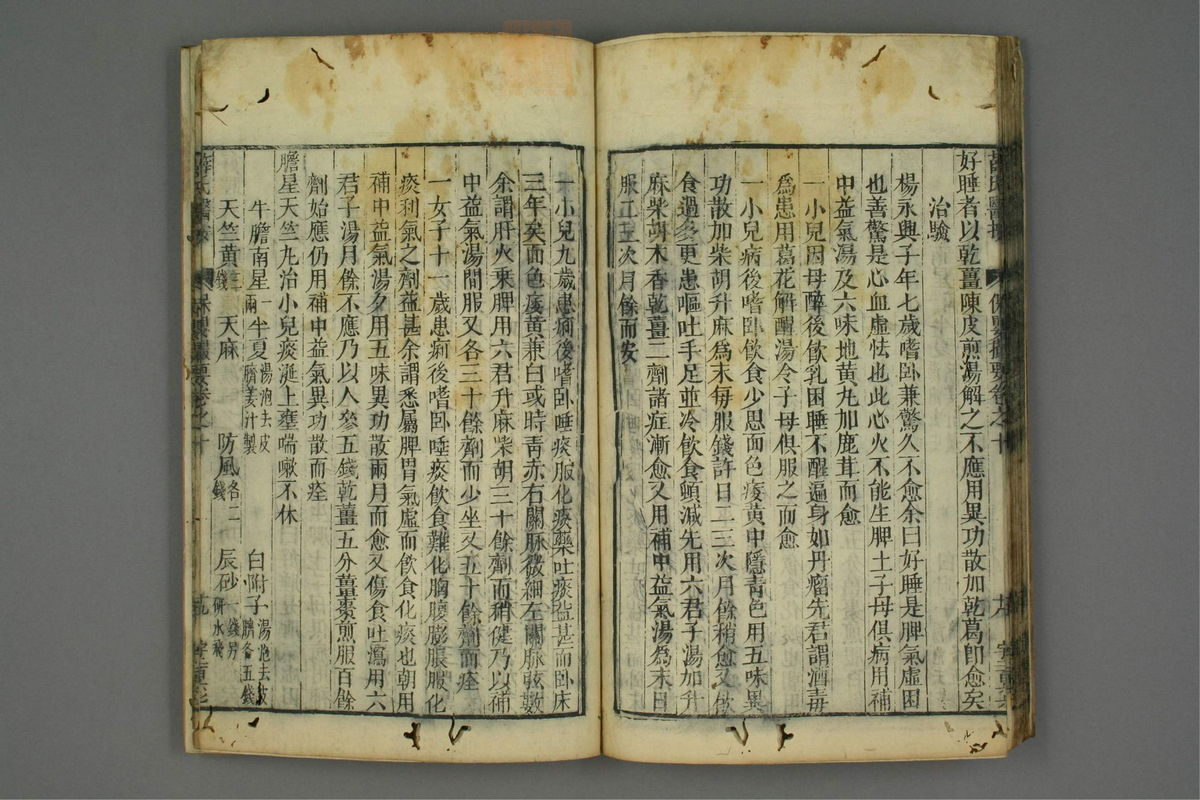 好睡者以乾薑陳皮煎湯解之不應用異功散加乾葛即愈矣
治驗
楊永興子年七歲嗜卧兼驚久不愈余曰好睡是脾氣虛困
也善驚是心血虛怯也此心火不能生脾土子母俱病用補
中益氣湯及六味地黃丸加鹿茸而愈
一小兒因母醉後飲乳困睡不醒遍身如丹瘤先君謂酒毒
爲患用葛花解酲湯令子母俱服之而愈
一小兒病後嗜卧飲食少思面色痿黃中隱青色用五味異
功散加柴胡升麻爲末每服錢許日二三次月餘稍愈又飲
食過多更患嘔吐手足並冷飲食頓減先用六君子湯加升
麻柴胡木香乾薑二劑諸症漸愈又用補中益氣湯爲末日
服二三次月餘而安
一小兒九歲患痢後嗜卧唾痰服化痰藥吐痰益甚而卧床
三年矣面色痿黃兼白或時青赤右關脉微細左關脉弦數
余謂肝火乘脾用六君升麻柴胡三十餘劑而稍健乃以補
中益氣湯間服又各三十餘劑而少坐又五十餘劑而痊
一女子十一歲患痢後嗜卧唾痰飲食難化胸腹膨脹服化
痰利氣之劑益甚余謂悉屬脾胃氣虛而飲食化痰也朝用
補中益氣湯夕用五味異功散兩月而愈又傷食吐瀉用六
君子湯月餘不應乃以人參五錢乾薑五分薑棗煎服百餘
劑始應仍用補中益氣異功散而痊
膽星天竺丸治小兒痰涎上壅喘嗽不休
牛膽南星一兩 半夏湯泡去皮臍姜汁製 白附子湯泡去皮臍各五錢
天竺黃三錢 天麻 防風各二錢 辰砂一錢另研水飛